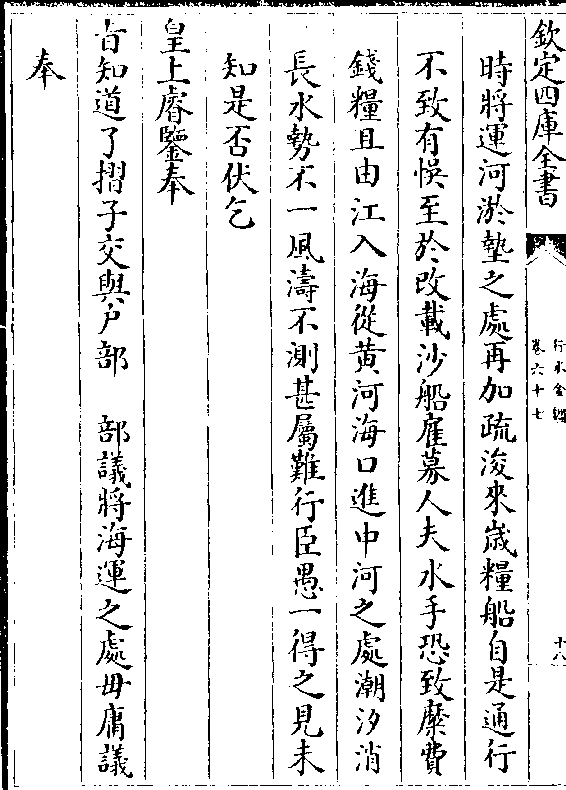 欽定四庫全書
行水金鑑
卷六十七
十八
時將運河淤墊之處再加疏浚來歲糧船自是通行
不致有悞至於改載沙船雇募人夫水手恐致糜費
錢糧且由江入海從黄河海口進中河之處潮汐消
長水勢不一風濤不測甚屬難行臣愚一得之見未
知是否伏乞
皇上睿鑒奉
㫖知道了摺子交與户部 部議將海運之處毋庸議
奉